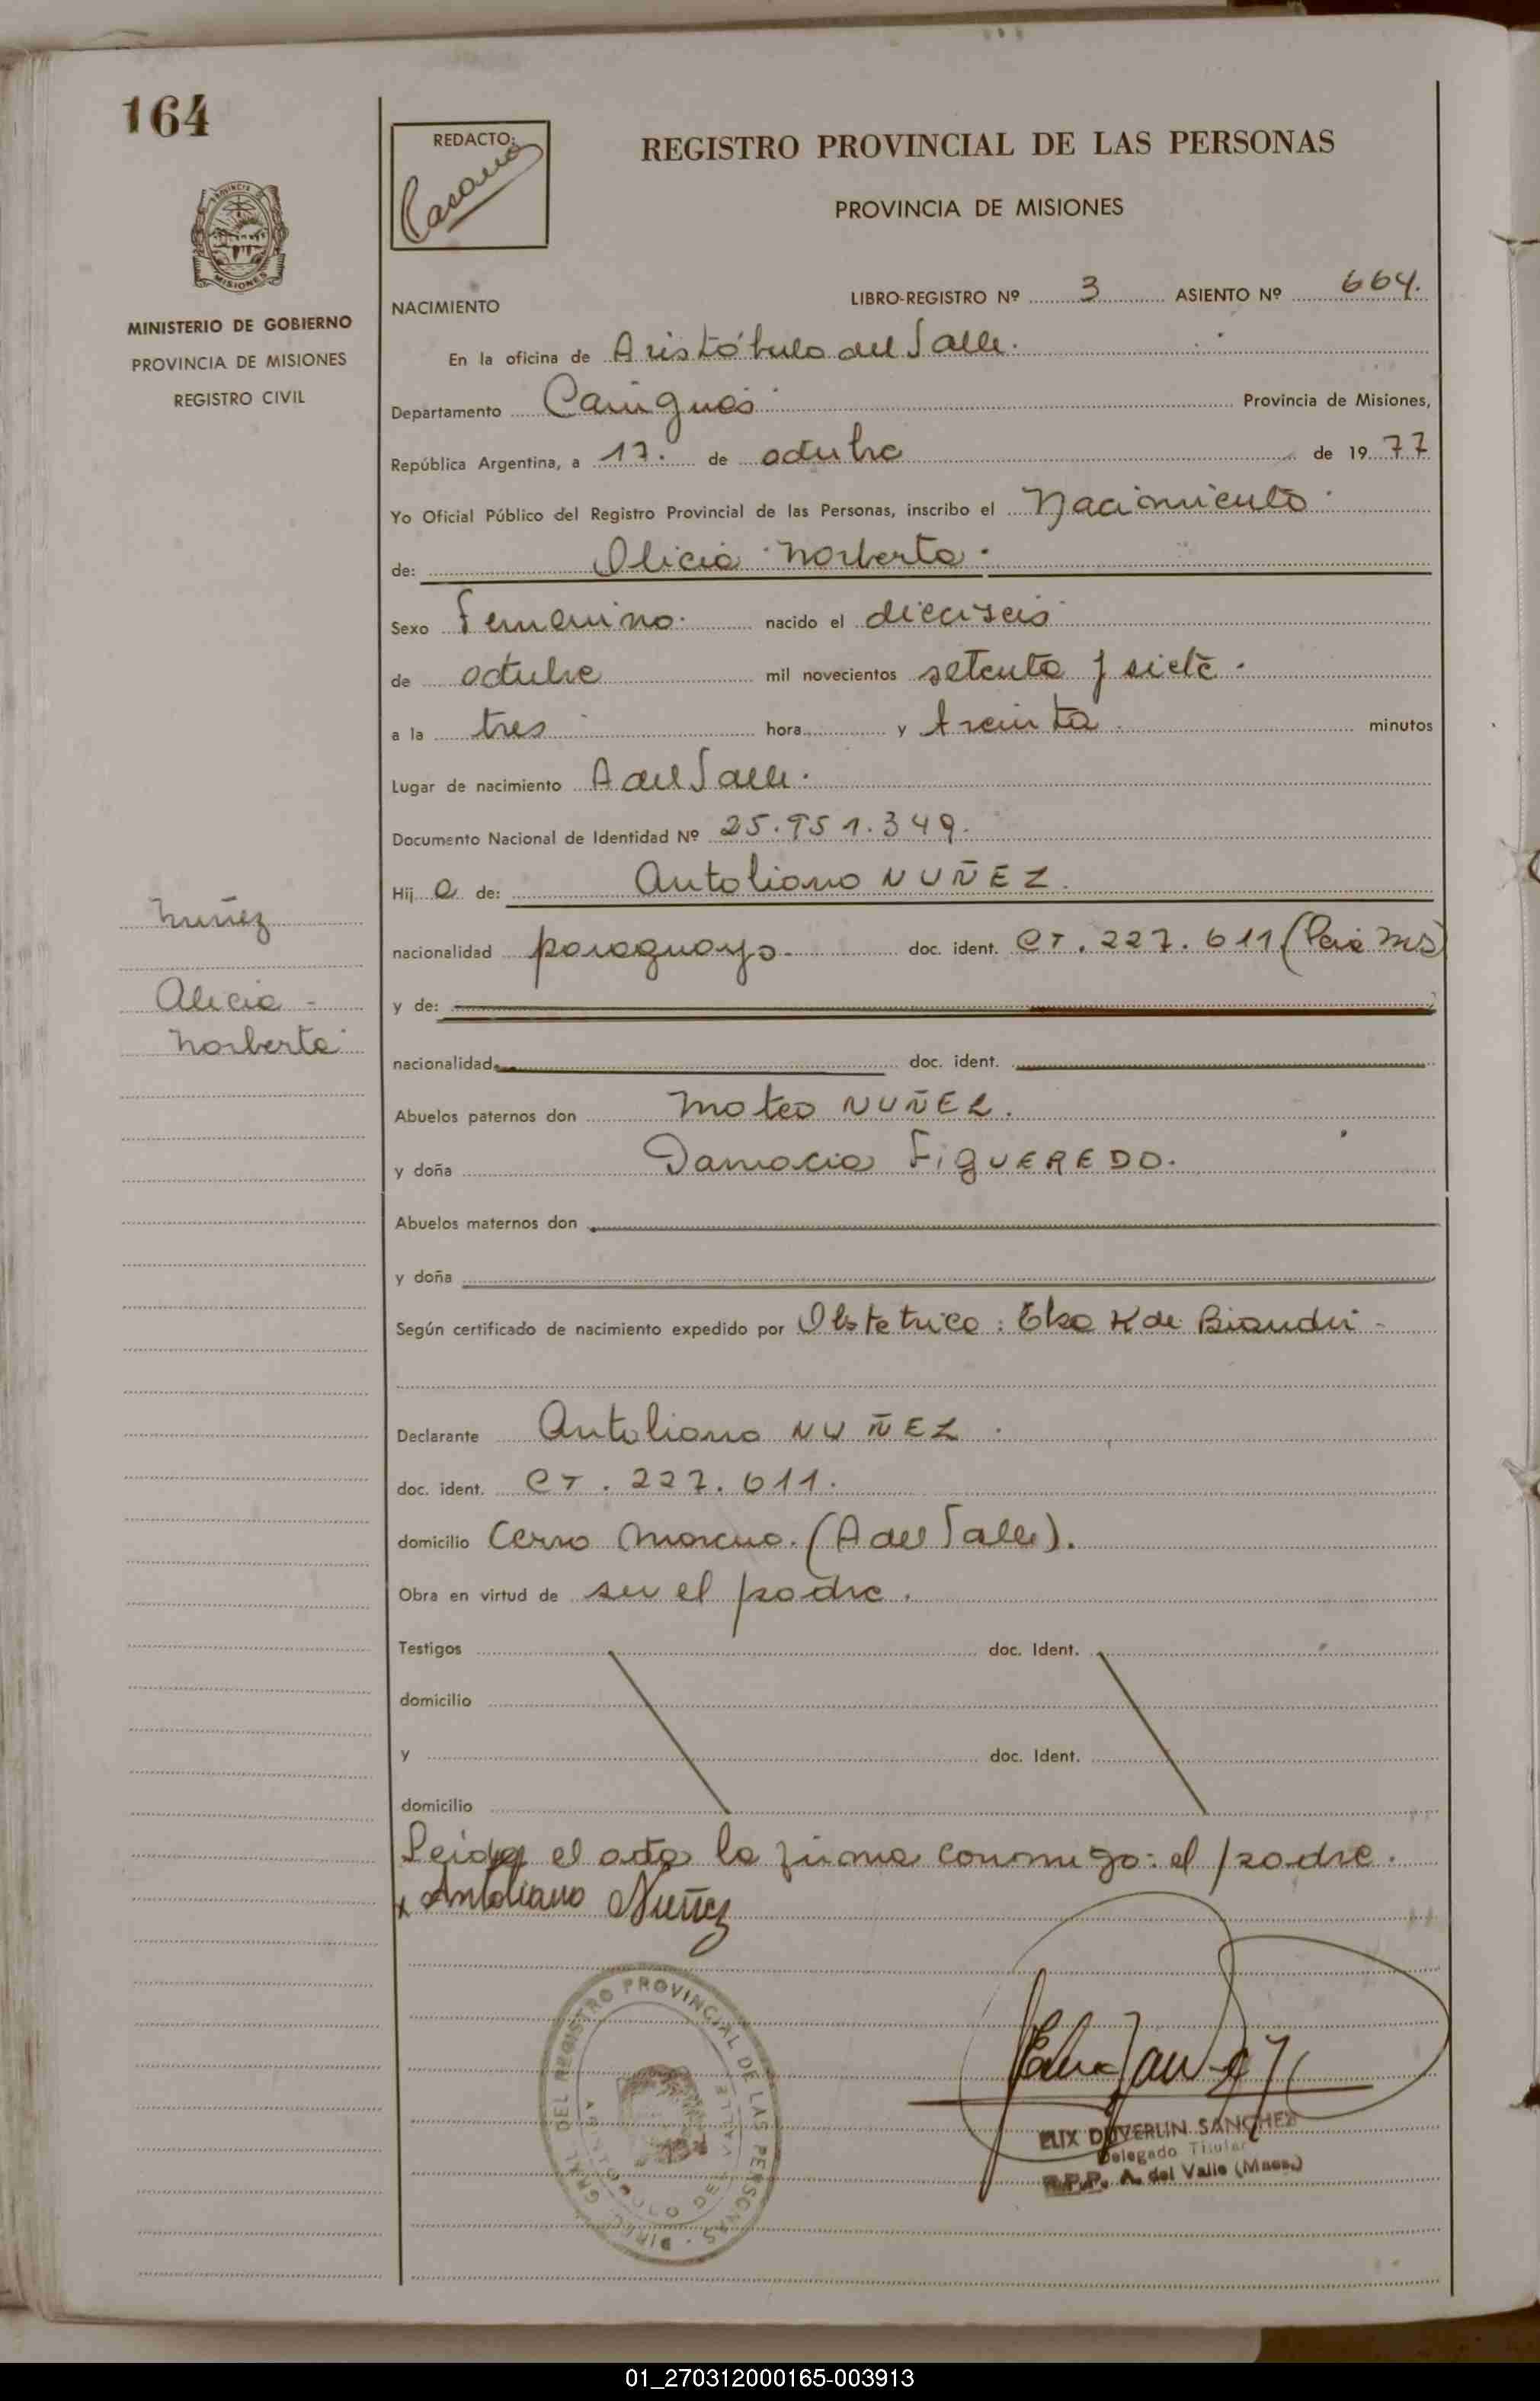 164
REDACTO:
REGISTRO PROVINCIAL DE LAS PERSONAS
PROVINCIA DE MISIONES
PROVINCIA
MISIONES
MINISTERIO DE GOBIERNO
PROVINCIA DE MISIONES
REGISTRO CIVIL
LIBRO-REGISTRO Nº 3 ASIENTO Nº 664.
NACIMIENTO
En la oficina de Aristóbulo del Valle.
Departamento Cainguás Provincia de Misiones,
República Argentina, a 17. de octubre de 1977
Yo Oficial Público del Registro Provincial de las Personas, inscribo el Nacimiento
de: Alicia Norberta.
Sexo Femenino. nacido el dieciseis
de octubre mil novecientos setenta y siete.
a la tres hora y treinta minutos
Lugar de nacimiento A del Valle.
Documento Nacional de Identidad Nº 25.951.349.
Hij a de: Antoliano NUÑEZ.
nacionalidad paraguayo doc. ident. CI. 227.611 (Pcia Ms)
y de:
nacionalidad doc. ident.
Abuelos paternos don Mateo NUÑEZ.
y doña Damacia FIGUEREDO.
Abuelos maternos don
y doña
Según certificado de nacimiento expedido por Obstetrica: K de
Declarante Antoliano NUÑEZ.
doc. ident. CI. 227.611.
domicilio Cerro Moreno. (A del Valle).
Obra en virtud de ser el padre.
Testigos doc. Ident.
domicilio
y doc. Ident.
domicilio
Leida el acta la firma conmigo: el padre.
x Antoliano Nuñez
Nuñez
Alicia
Norberta
DIREC. GRAL. DEL REGISTRO PROVINCIAL DE LAS PERSONAS
ARISTOBULO DEL VALLE
ELIX DUVERLIN SANCHEZ
Delegado Titular
R.P.P. A. del Valle (Mnes.)
01_270312000165-003913